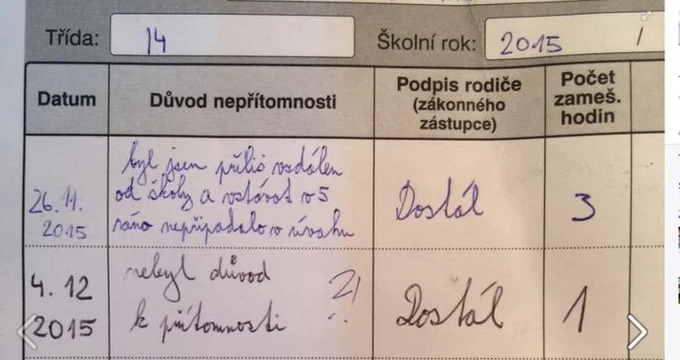 Třída: 14 Školní rok: 2015 /
Datum Důvod nepřítomnosti Podpis rodiče (zákonného zástupce) Počet zameš. hodin
26.11. 2015
byl jsem příliš vzdálen
od školy a vstávat v 5
ráno nepřipadalo v úvahu
Dostál
3
4.12 2015
nebyl důvod
k přítomnosti
?!
Dostál
1